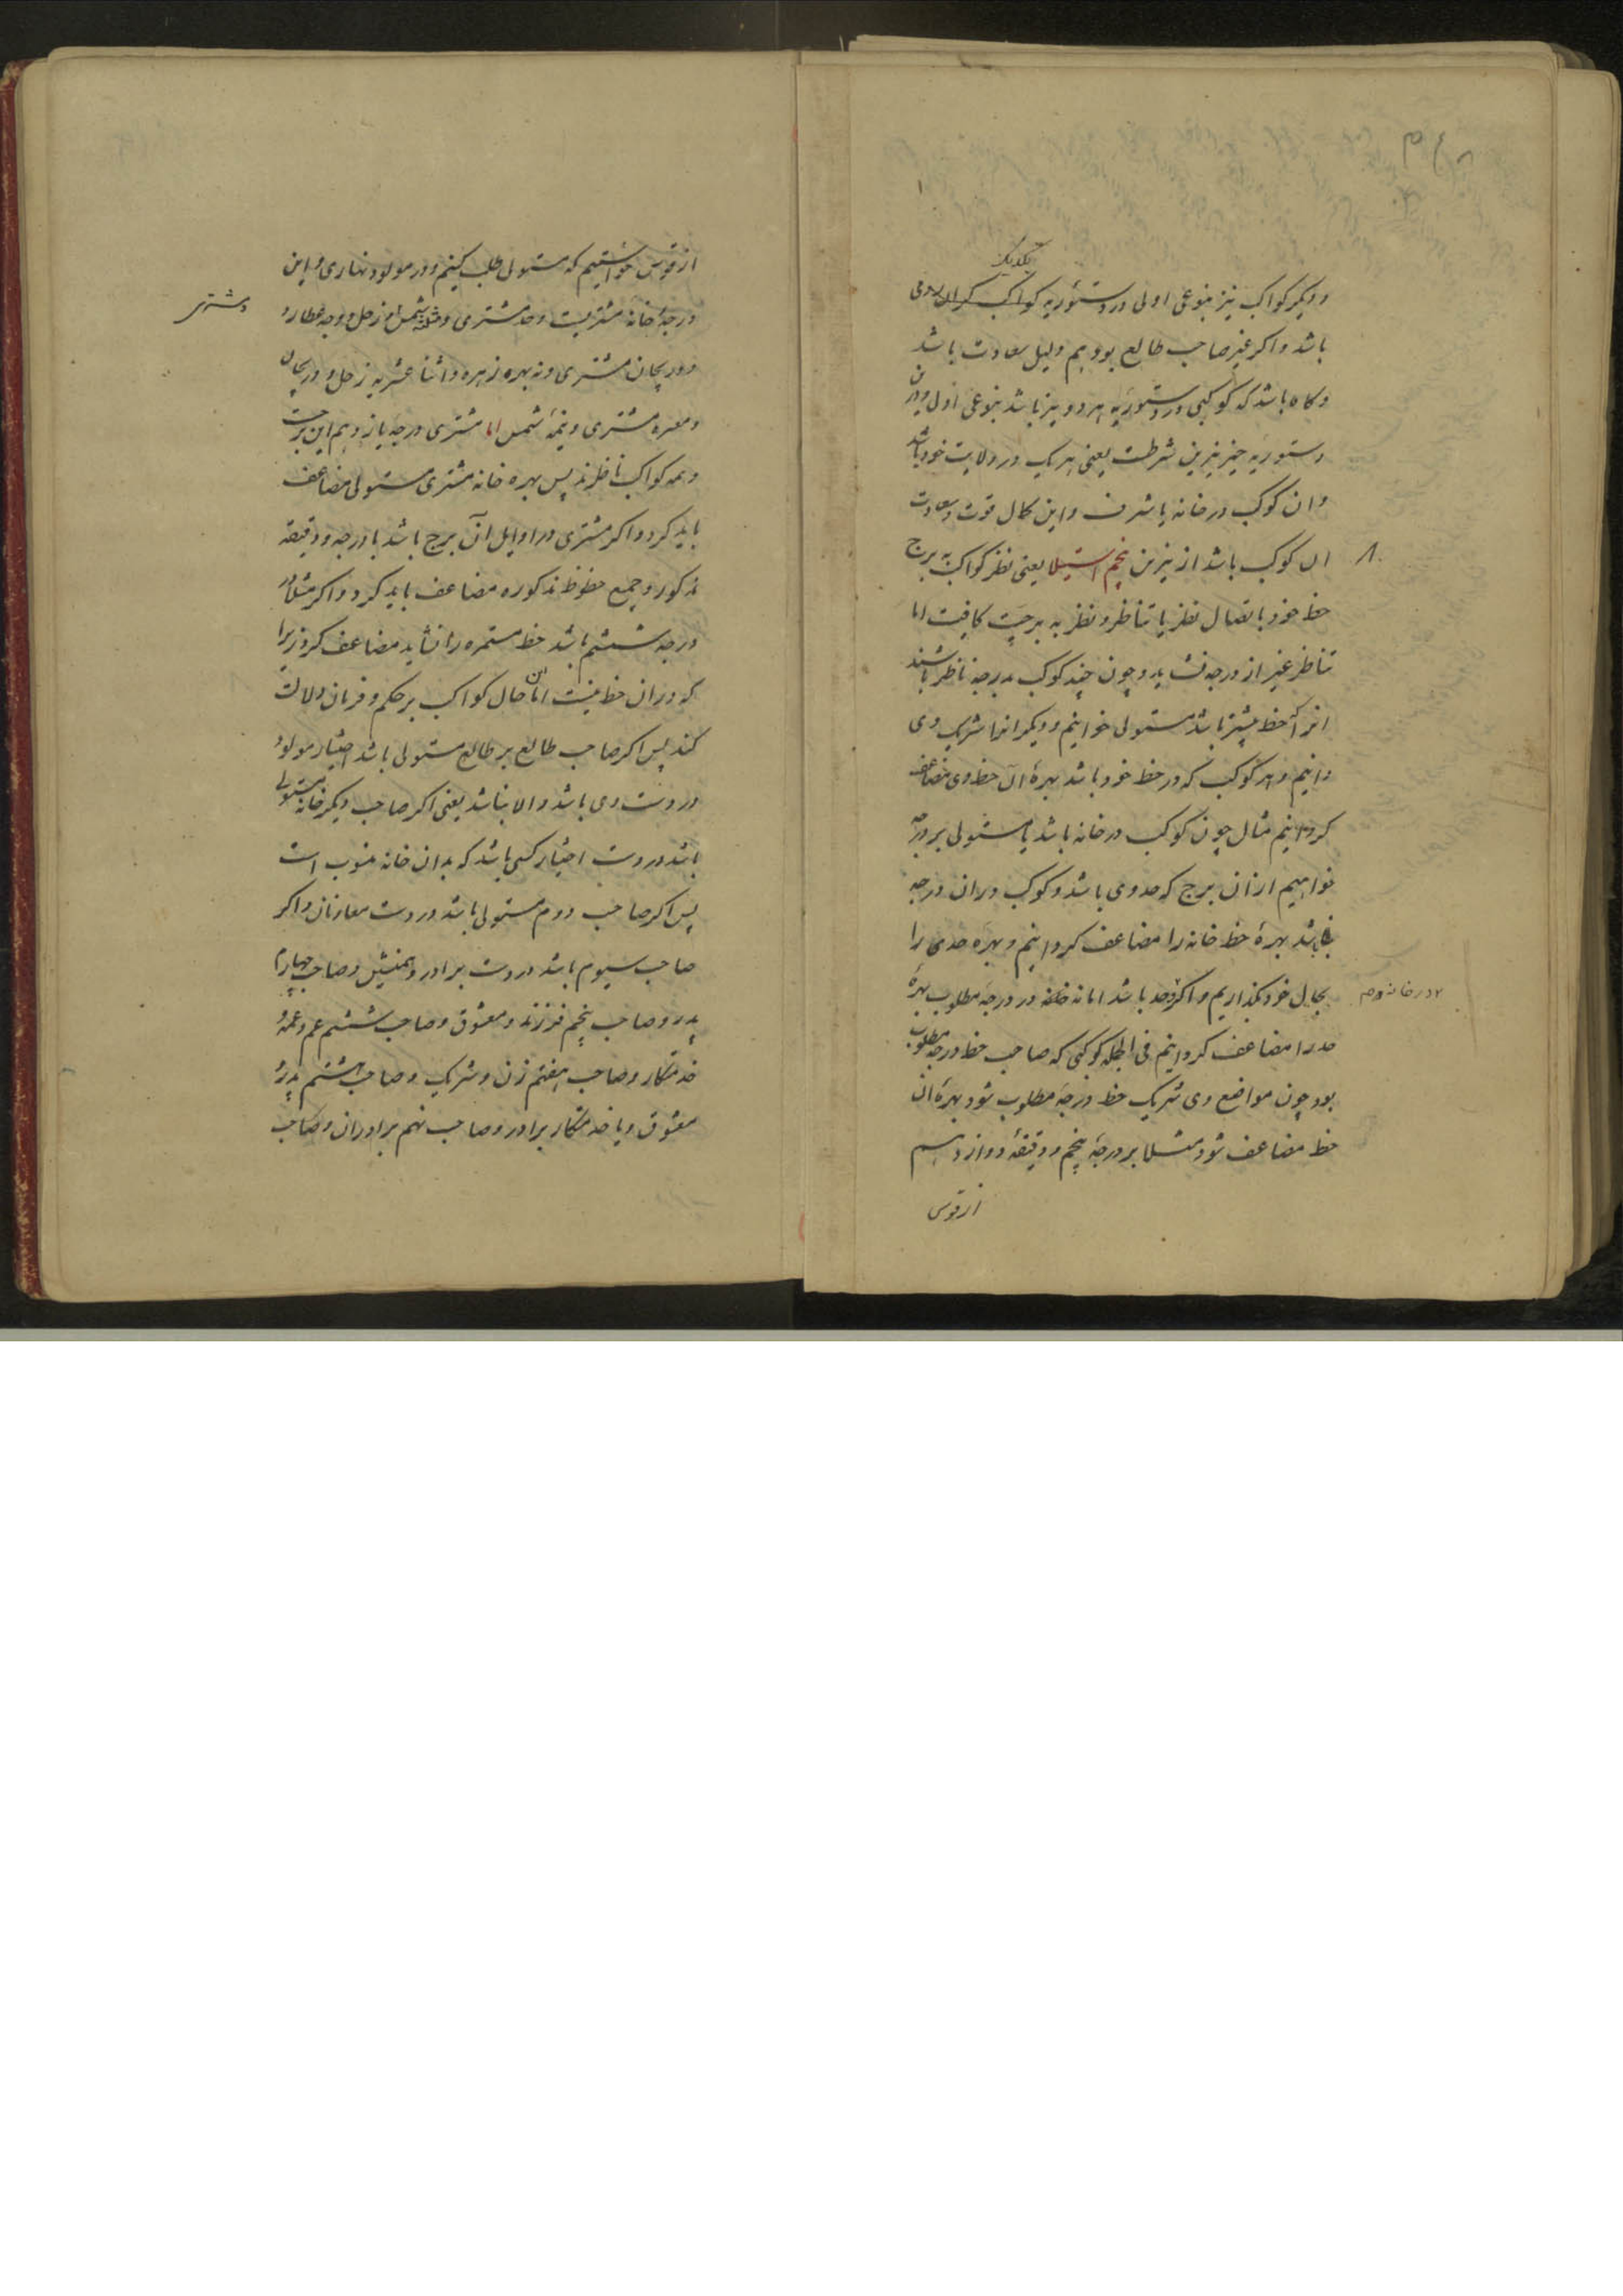 یکدیگر
ودیگر کواکب نیز بنوعی اولی در دستوریه کواکب
باشد واکر غیر صاحب طالع بود هم دلیل سعادت باشد
وکاه باشد که کوکبی در دستوریه هر دو نیز باشد بنوعی اول ودرین
دستوریه حیز نیرین شرطست یعنی هریک در ولایت خود باشد
وان کوکب در خانه یا شرف واین کمال قوت وسعادت
ان کوکب باشد از نیرین پنجم استیلا یعنی نظر کواکب به برج
حظ خود باتصال نظر یا تناظر ونظر به برجیت کافیست اما
تناظر غیر از درجه نشاید وچون چند کوکب بدرجه ناظر باشند
انرا که حظ بیشتر باشد مستولی خوانیم ودیکر انها شریک وی
دانیم وهر کوکب که در حظ خود باشد بهرهٔ ان حظ وی مضاعف
کردانیم مثال چون کوکب در خانه باشد یا مستولی بر درجه
خواهیم از ان برج که حد وی باشد وکوکب در ان درجه
نباشد بهرهٔ حظ خانه را مضاعف کردانیم وبهره حدی را
بحال خود بکذاریم واکر در حد باشد اما نه در درجهٔ مطلوب بهرهٔ
در خانه وهم
حد را مضاعف کردانیم فی الجمله کوکبی که صاحب حظ درجه مطلوب
بود چون مواضع وی شریک حظ درجهٔ مطلوب شود بهرهٔ ان
حظ مضاعف شود مثلا بر درجهٔ پنجم ودقیقهٔ دوازدهم
از قوس
از قوس خواستیم که مستولی طلب کنیم ودر مولود نهاری واین
درجهٔ خانهٔ مشتریست وحد مشتری ومثلثه شمس زحل ووجه عطارد
ومشتری
ودریجان مشتری ونه بهره زهره واثنا عشریه زحل ودریجان
مشتری ونیمهٔ شمس اما مشتری درجه یازدهم این برجست
وهمه کواکب ناظرند پس بهره خانه مشتری مستولی مضاعف
باید کرد واکر مشتری در اوایل ان برج باشد با درجه ودقیقه
مذکور وجمیع حظوظ مذکوره مضاعف باید کرد واکر مثلا در
درجه ششم باشد حظ مستمره را نشاید مضاعف کرد زیرا
که در ان حظ نیست اما حال کواکب بر حکم وفرمان دلالت
کند پس اکر صاحب طالع بر طالع مستولی باشد اختیار مولود
در دست وی باشد والا نباشد یعنی اکر صاحب دیکر خانه مستولی
باشد در دست اختیار کسی باشد که بدان خانه منسوب است
پس اکر صاحب دوم مستولی باشد در دست معاونان واکر
صاحب سیوم باشد در دست برادر وهمنشین وصاحب چهارم
پدر وصاحب پنجم فرزند ومعشوق وصاحب ششم عم وعمه و
خدمتکار وصاحب هفتم زن وشریک وصاحب هشتم پدر
معشوق ویا خدمتکار برادر وصاحب نهم برادران وصاحب